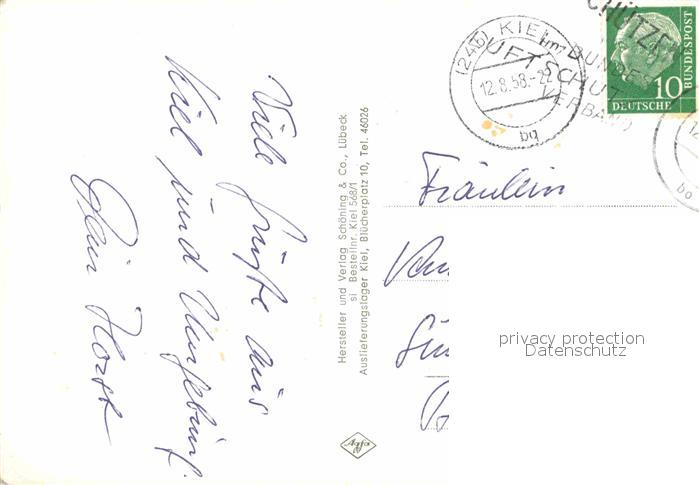 Viele Grüße aus
Kiel und Umgebung
Dein Horst
Hersteller und Verlag Schöning & Co., Lübeck
si Bestellnr. Kiel 568/1
Auslieferungslager Kiel, Blücherplatz 10, Tel. 46026
Agfa
(24b) KIEL
12.8.58.-22
bq
LUFTSCHUTZ
BUNDES
VERBAND
10
DEUTSCHE
BUNDESPOST
Fräulein
privacy protection
Datenschutz